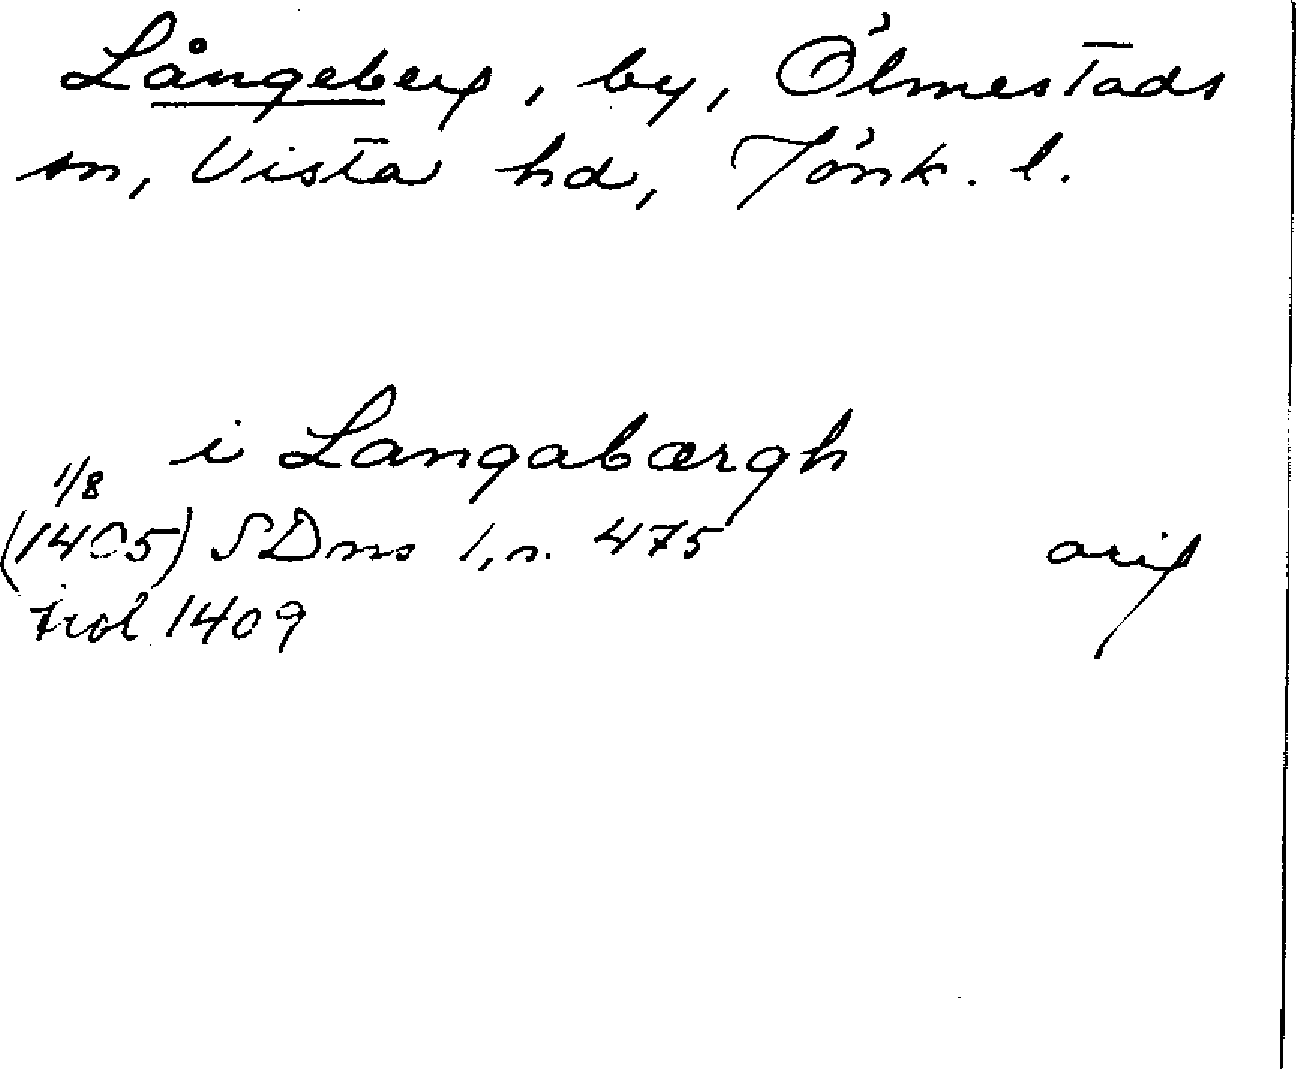 Långeberg, by, Ölmestads
sn, Vista hd, Jönk. l.
i Langabærgh
1/8
(1405) SDns 1, s. 475 orig
trol 1409